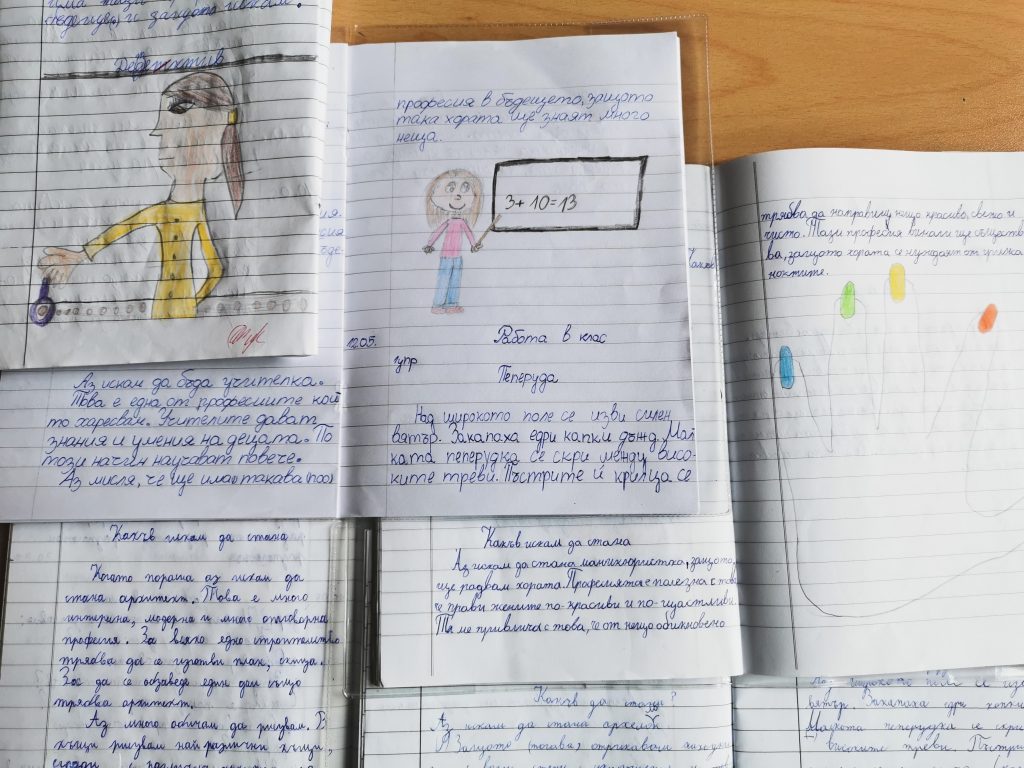 има
и защото искам.
Детектив
професия в бъдещето, защото
така хората ще знаят много
неща.
3+ 10=13
1205.
Работа в клас
упр
Пеперуда
Над широкото поле се изви силен
вятър. Закапаха едри капки дъжд. Мал
ката пеперудка се скри между висо-
ките треви. Пъстрите ѝ крилца се
Аз искам да бъда учителка.
Това е една от професиите кои
то харесвам. Учителите дават
знания и умения на децата. По
този начин научават повече.
Аз мисля, че ще има такава
трябва да направиш нещо красиво, свежо и
чисто. Тази професия винаги ще съществу
ва, защото хората се нуждаят от грижа
ноктите.
Какъв искам да стана
Когато порасна аз искам да
стана архитект. Това е много
интерна, модерна и много отговорна
професия. За всяко едно строителство
трябва да се изготви план, скица.
За да се обзаведе един дом също
трябва архитект.
Аз много обичам да рисувам. В
къщи рисувам най-различни къщи,
Какъв искам да стана
Аз искам да стана маникюристка, защото
ще радвам хората. Професията е полезна с това
че прави жените по-красиви и по-щастливи.
Тя ме привлича с това, че от нещо обикновено
Какъв да стана?
Аз искам да стана археолог
Защото
поле се изви
вятър. Закапаха едри капки
Малката пеперудка се скри
високите треви. Пъстри